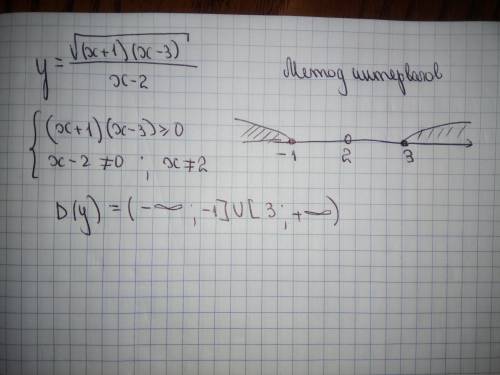 y = √((x+1)(x-3)) / (x-2)
Метод интервалов
{ (x+1)(x-3) ≥ 0
x-2 ≠ 0 ; x ≠ 2
-1 2 3
D(y) = (-∞ ; -1] U [3 ; +∞)